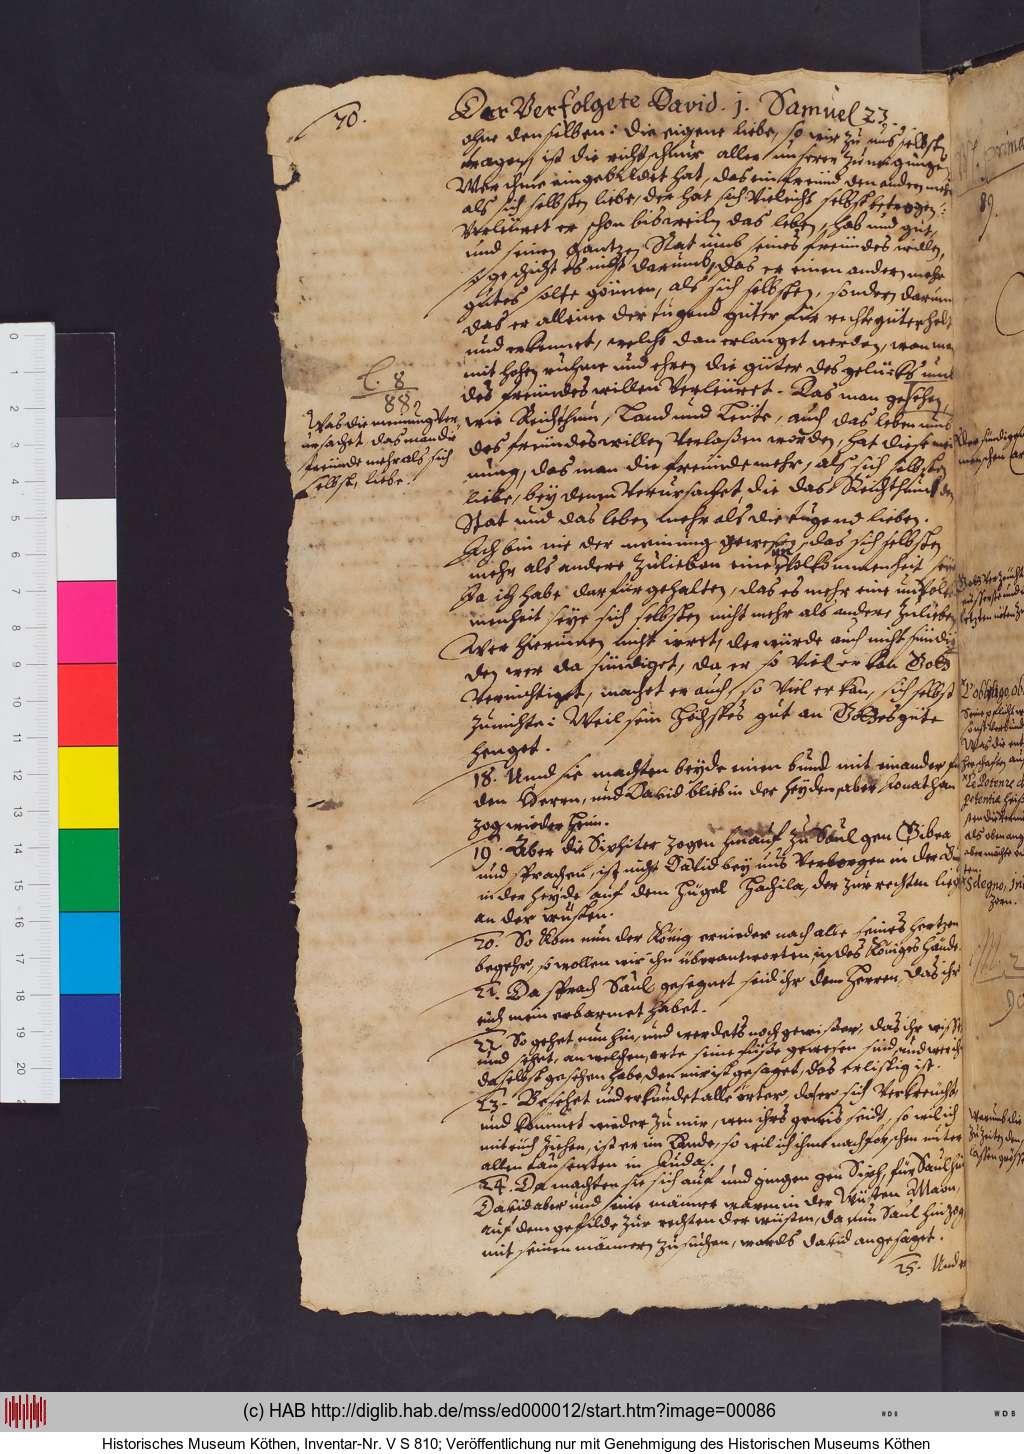 70.
Der Verfolgete David. j. Samuel 23.
ohne denselben: die eigene liebe, so wir zu uns selbst
tragen, ist die richtschnur aller unserer zuneigunge.
Wer ihme eingebildet hat, das ein freund den andern mehr
als sich selbsten liebe, der hat sich Vieleicht selbst betrogen:
Verleuret er schon bisweiln das leben, hab und gut,
und seinen gantzen Stat umb seines freundes willen,
so geschicht es nicht darumb, das er einem andern mehr
gutes solte gönnen, als sich selbsten, sondern darum
das er alleine der tugend güter für rechte güter helt
und erkennet, welche dan erlanget werden, wan man
mit hohen ruhme und ehren die güter des gelücks umb
des freundes willen Verleuret. Das man gesehen,
wie Reichthum, Land und Leute, auch das leben umb
des freundes willen Verlaßen worden, hat diese mei
nung, das man die freunde mehr, als sich selbsten
liebe, bey denen Verursachet, die das Reichthum, den
Stat und das leben mehr als die tugend lieben.
Ich bin nie der meinung gewesen, das sich selbsten
mehr als andere zulieben eine Volkommenheit sey
Ja ich habe darfür gehalten, das es mehr eine unVolko
menheit seye sich selbsten nicht mehr als andere zulieben
Wer hierinnen nicht irret, der würde auch nicht sündig
den wer da sündiget, da er so Viel er kan Gott
Vernichtiget, machet er auch, so Viel er kan, sich selbst
zunichte: Weil sein höchstes gut an Gottes güte
henget.
18. Unnd sie machten beyde einen bund mit einander für
dem Herren, und David blieb in der heyden, aber Jonathan
zog wieder heim.
19. Aber die Siphiter zogen hinauf zu Saul gen Gibea
und sprachen, ist nicht David bey uns Verborgen in der
in der heyde auf dem hügel Hachila, der zur rechten lieg
an der wüsten.
20. So kom nun der König ernieder nach alle seines hertzen
begehr, so wollen wir ihn überantworten in des Königes hände.
21. Da sprach Saul, gesegnet seid ihr dem Herren, das ihr
euch mein erbarmet habet.
22. So gehet nun hin, und werdets noch gewißer, das ihr wisset
und sehet, an welchem orte seine füße gewesen sind, und wer ihn
daselbst gesehen habe, den mir ist gesaget, das er listig ist.
23. Besehet und erkundet alle örter, daher sich Verkreucht,
und kommet wieder zu mir, wen ihrs gewis seidt, so wil ich
mit euch ziehen, ist er im Lande, so wil ich ihme nachforschen unter
allen tausenten in Juda.
24. Da machten sie sich auf und gingen gen Siph, für Saul hin
David aber und seine männer waren in der Wüsten Maon,
auf dem gefilde zur rechten der wüsten, da nun Saul hinzog
mit seinen männern zu suchen, wards David angesaget.
25. Und
C. 8
88 2
Was die meinung Ver,
ursachet das man die
freunde mehr als sich
selbst, liebe.
prima
89.
Der sündigen
menschen
L'obligo, ob
Le Potenze
potentia
Sdegno,
Zorn.
Warumb die
zu zeiten den
0 1 2 3 4 5 6 7 8 9 10 11 12 13 14 15 16 17 18 19 20
(c) HAB http://diglib.hab.de/mss/ed000012/start.htm?image=00086
WDB
WDB
Historisches Museum Köthen, Inventar-Nr. V S 810; Veröffentlichung nur mit Genehmigung des Historischen Museums Köthen